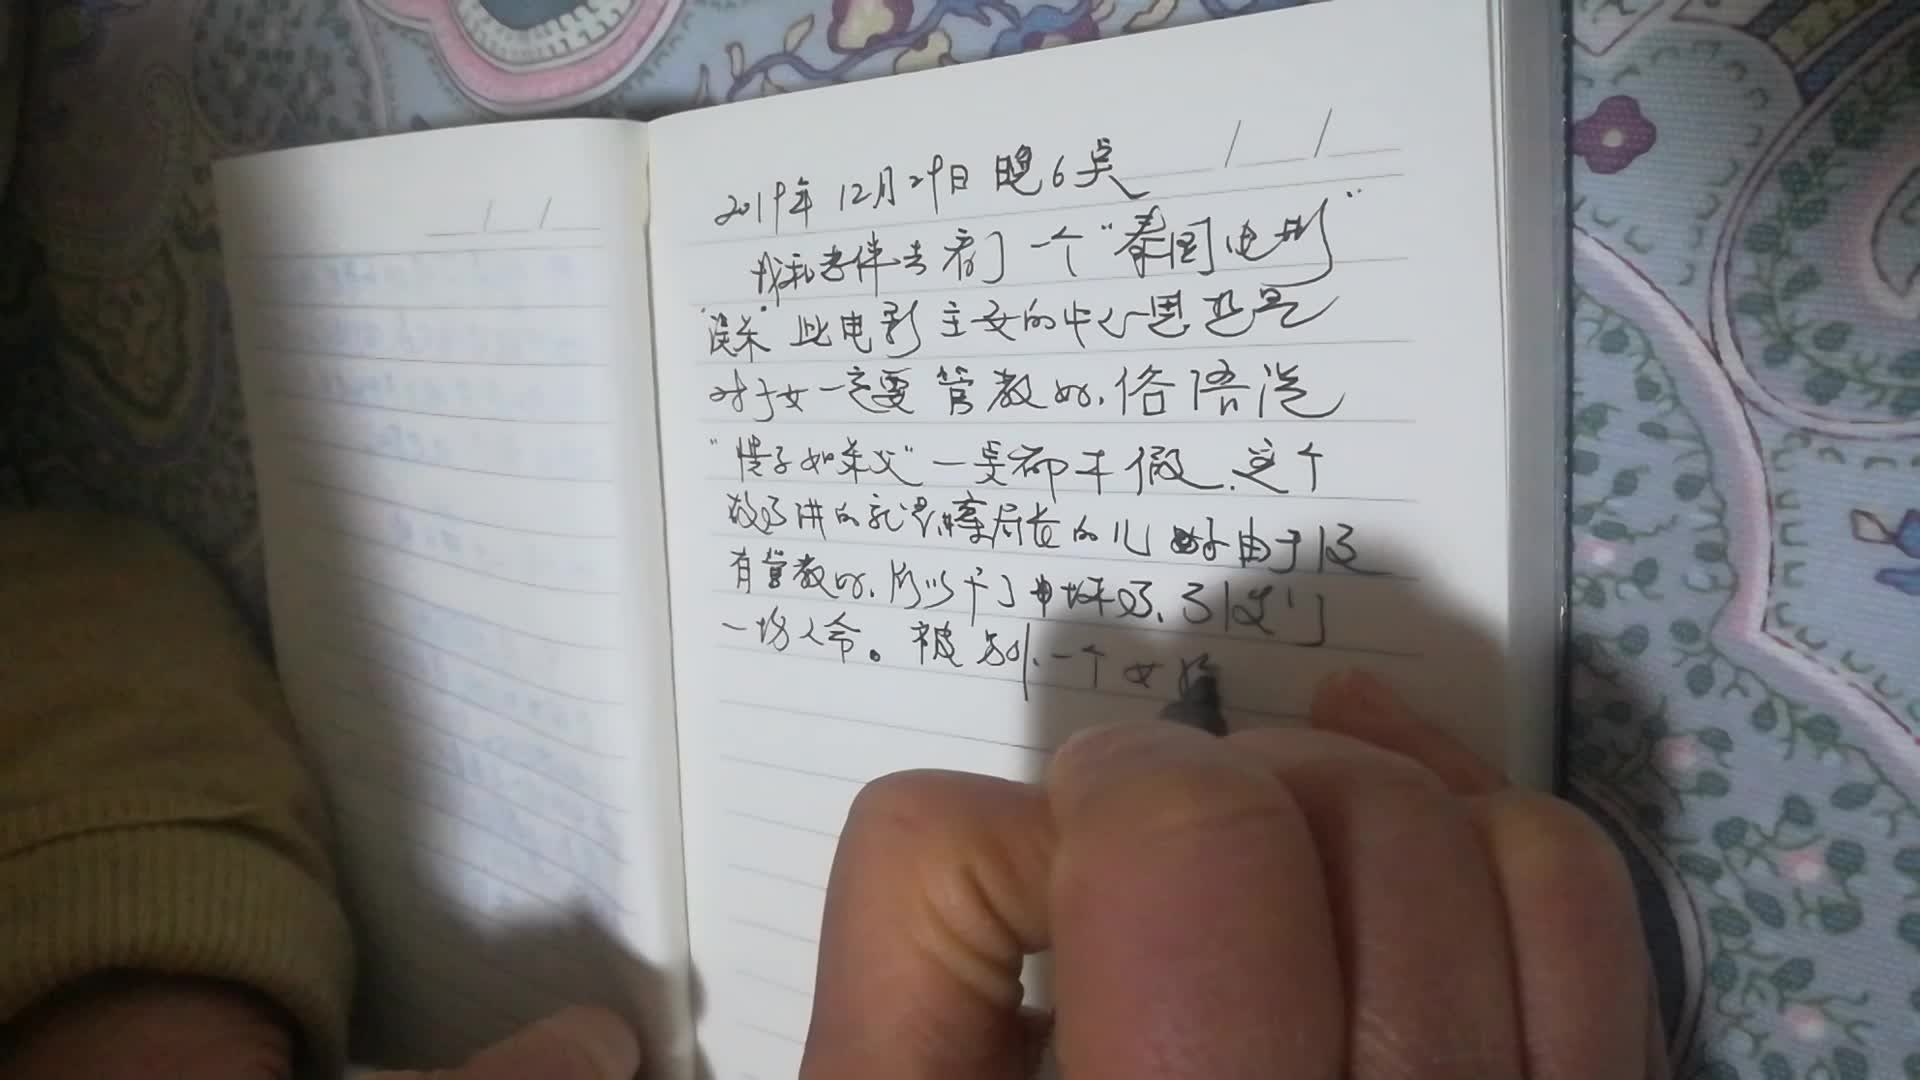 2019年 12月29日 晚6点
我和老伴去看了一个“泰国电影”
“误杀”此电影主要的中心思想是
对子女一定要管教好.俗语说
“惯子如杀父”一点都不假.这个
故事讲的就是警察局长的儿子由于没
有管教好.所以干了坏事.引发了
一场人命。被另外一个女孩